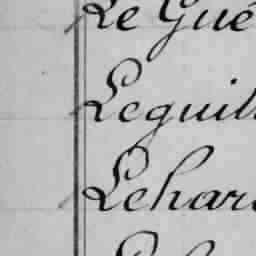 Le Gué
Leguill
Lehar